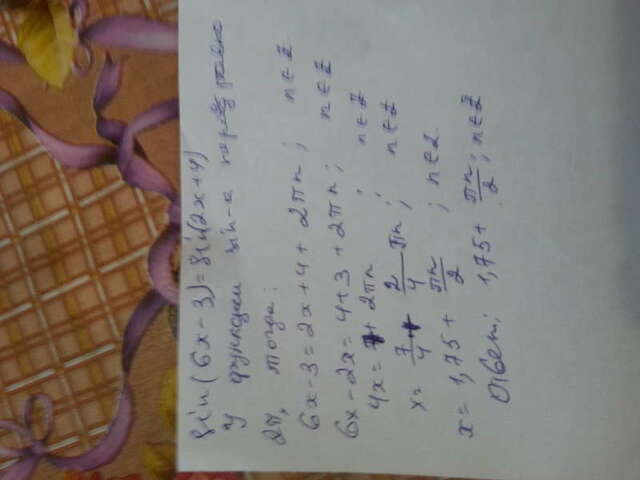 sin(6x-3)=sin(2x+4)
У функции sin-а период равен
2π, тогда:
6x-3=2x+4+2πn; n∈Z
6x-2x=4+3+2πn; n∈Z
4x=7+2πn; n∈Z
x=7/4+2/4πn; n∈Z
x=1,75+πn/2; n∈Z
Ответ: 1,75+πn/2; n∈Z